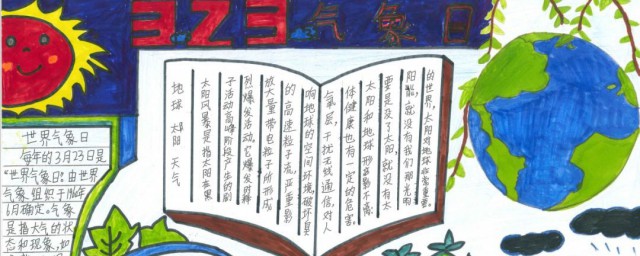 323气象日
世界气象日
每年的3月23日是
“世界气象日”由世界
气象组织于1960年
6月确定。气象
是指大气的状
态和现象,如
地球 太阳 天气
太阳风暴是指太阳在黑
子活动高峰阶段产生的剧
烈爆发活动。它爆发时释
放大量带电粒子所形成
的高速粒子流,严重影
响地球的空间环境,破坏臭
氧层,干扰无线通信,对人
体健康也有一定的危害。
太阳和地球形影不离,
要是没了太阳,就没有太
阳能,就没有我们那光明
的世界,太阳对地球非常重要。